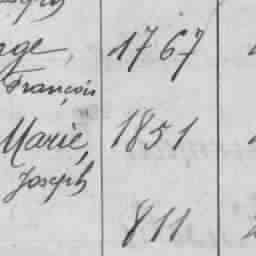 rge, 1767
François
Marie, 1851
Joseph
811